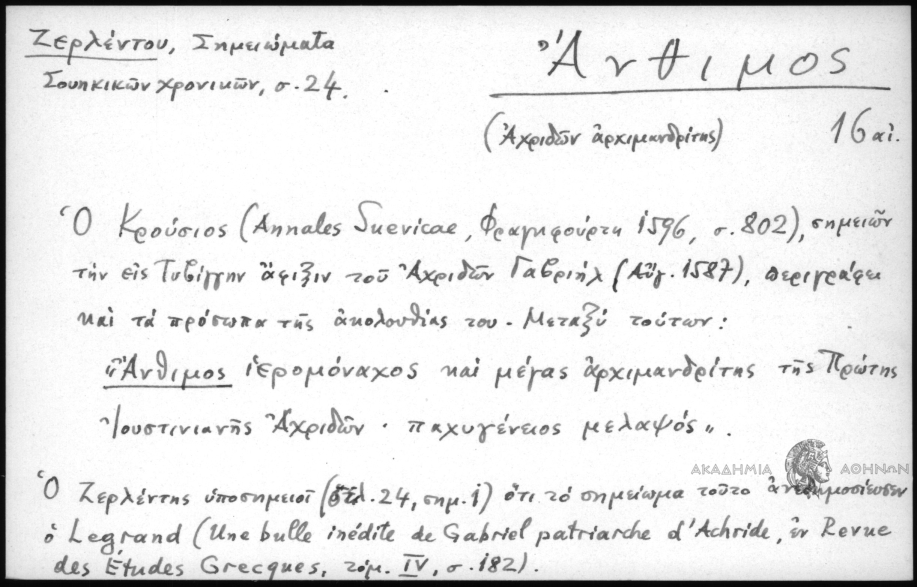 Ζερλέντου, Σημειώματα
Σουηκικῶν χρονικῶν, σ. 24.
Ἄνθιμος
(Ἀχριδῶν ἀρχιμανδρίτης) 16 αἰ.
Ὁ Κρούσιος (Annales Suevicae, Φραγκφούρτη 1596, σ. 802), σημειῶν
τὴν εἰς Τυβίγγην ἄφιξιν τοῦ Ἀχριδῶν Γαβριήλ (Αὔγ. 1587), περιγράφει
καὶ τὰ πρόσωπα τῆς ἀκολουθίας του. Μεταξὺ τούτων:
"Ἄνθιμος ἱερομόναχος καὶ μέγας ἀρχιμανδρίτης τῆς Πρώτης
Ἰουστινιανῆς Ἀχριδῶν · παχυγένειος μελαψός".
ΑΚΑΔΗΜΙΑ ΑΘΗΝΩΝ
Ὁ Ζερλέντης ὑποσημειοῖ (24, σημ. 1) ὅτι τὸ σημείωμα τοῦτο ἀνεδημοσίευσεν
ὁ Legrand (Une bulle inédite de Gabriel patriarche d'Achride, ἐν Revue
des Études Grecques, τόμ. IV, σ. 182).